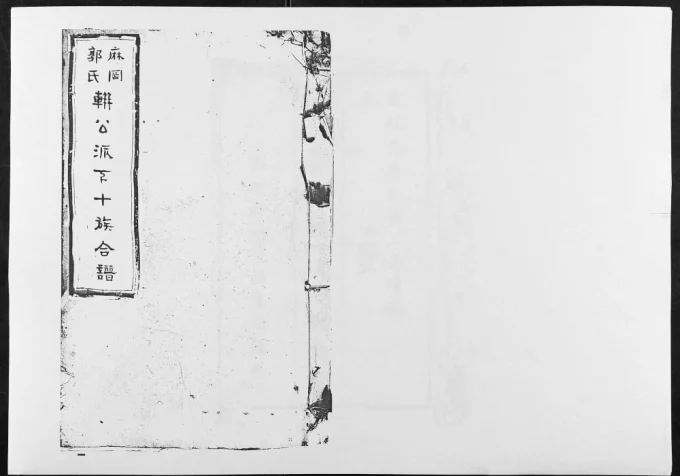 麻岡
郭氏
輧公派下十族合譜